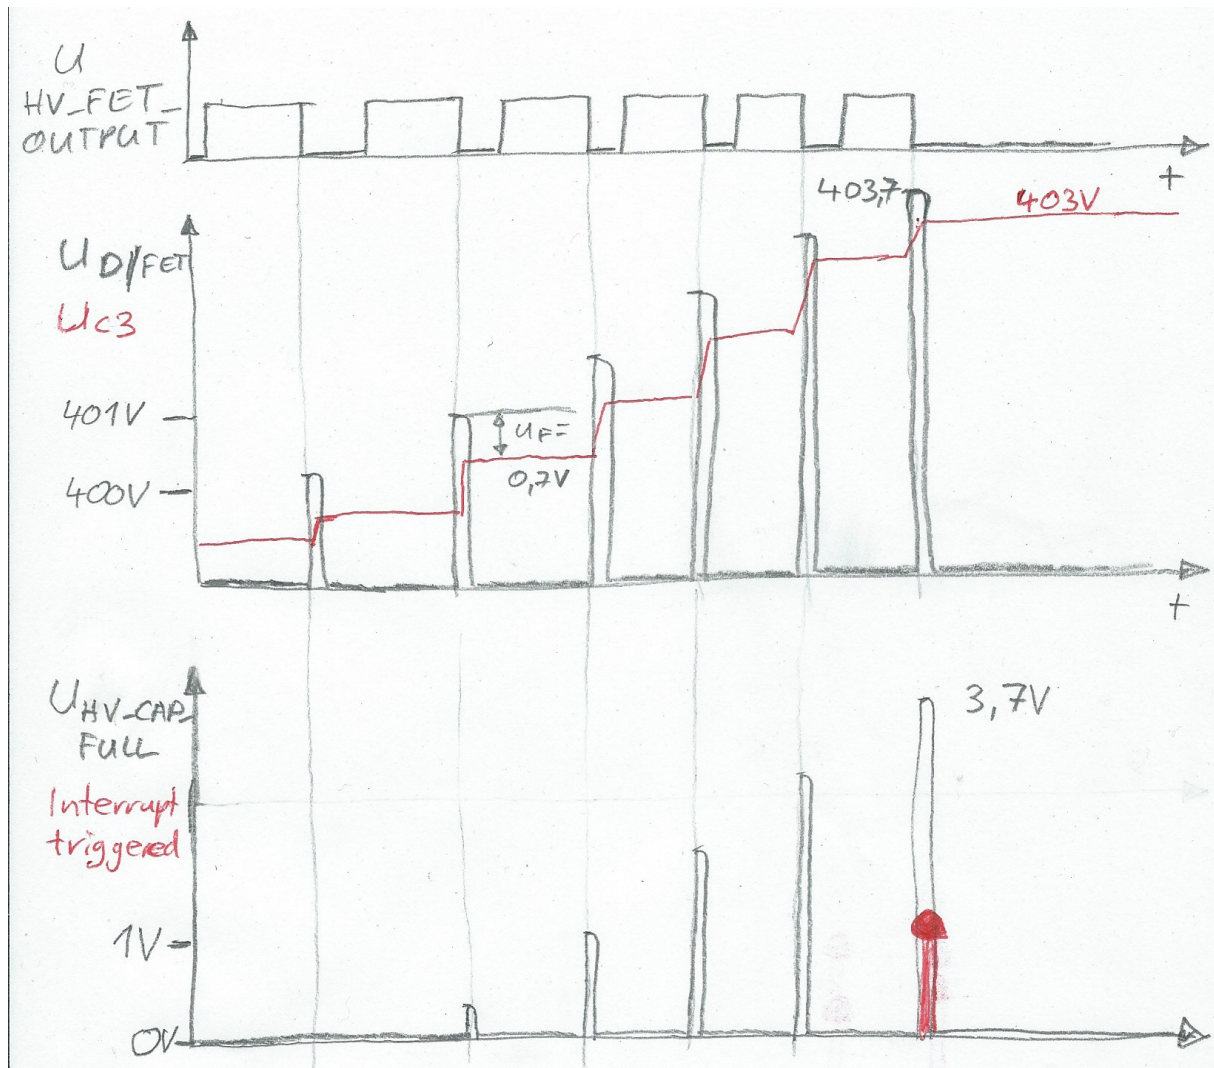 U
HV_FET_
OUTPUT
t
403,7
403V
U D/FET
Uc3
401V
UF=
0,7V
400V
t
U HV_CAP_
FULL
3,7V
Interrupt
triggered
1V
0V